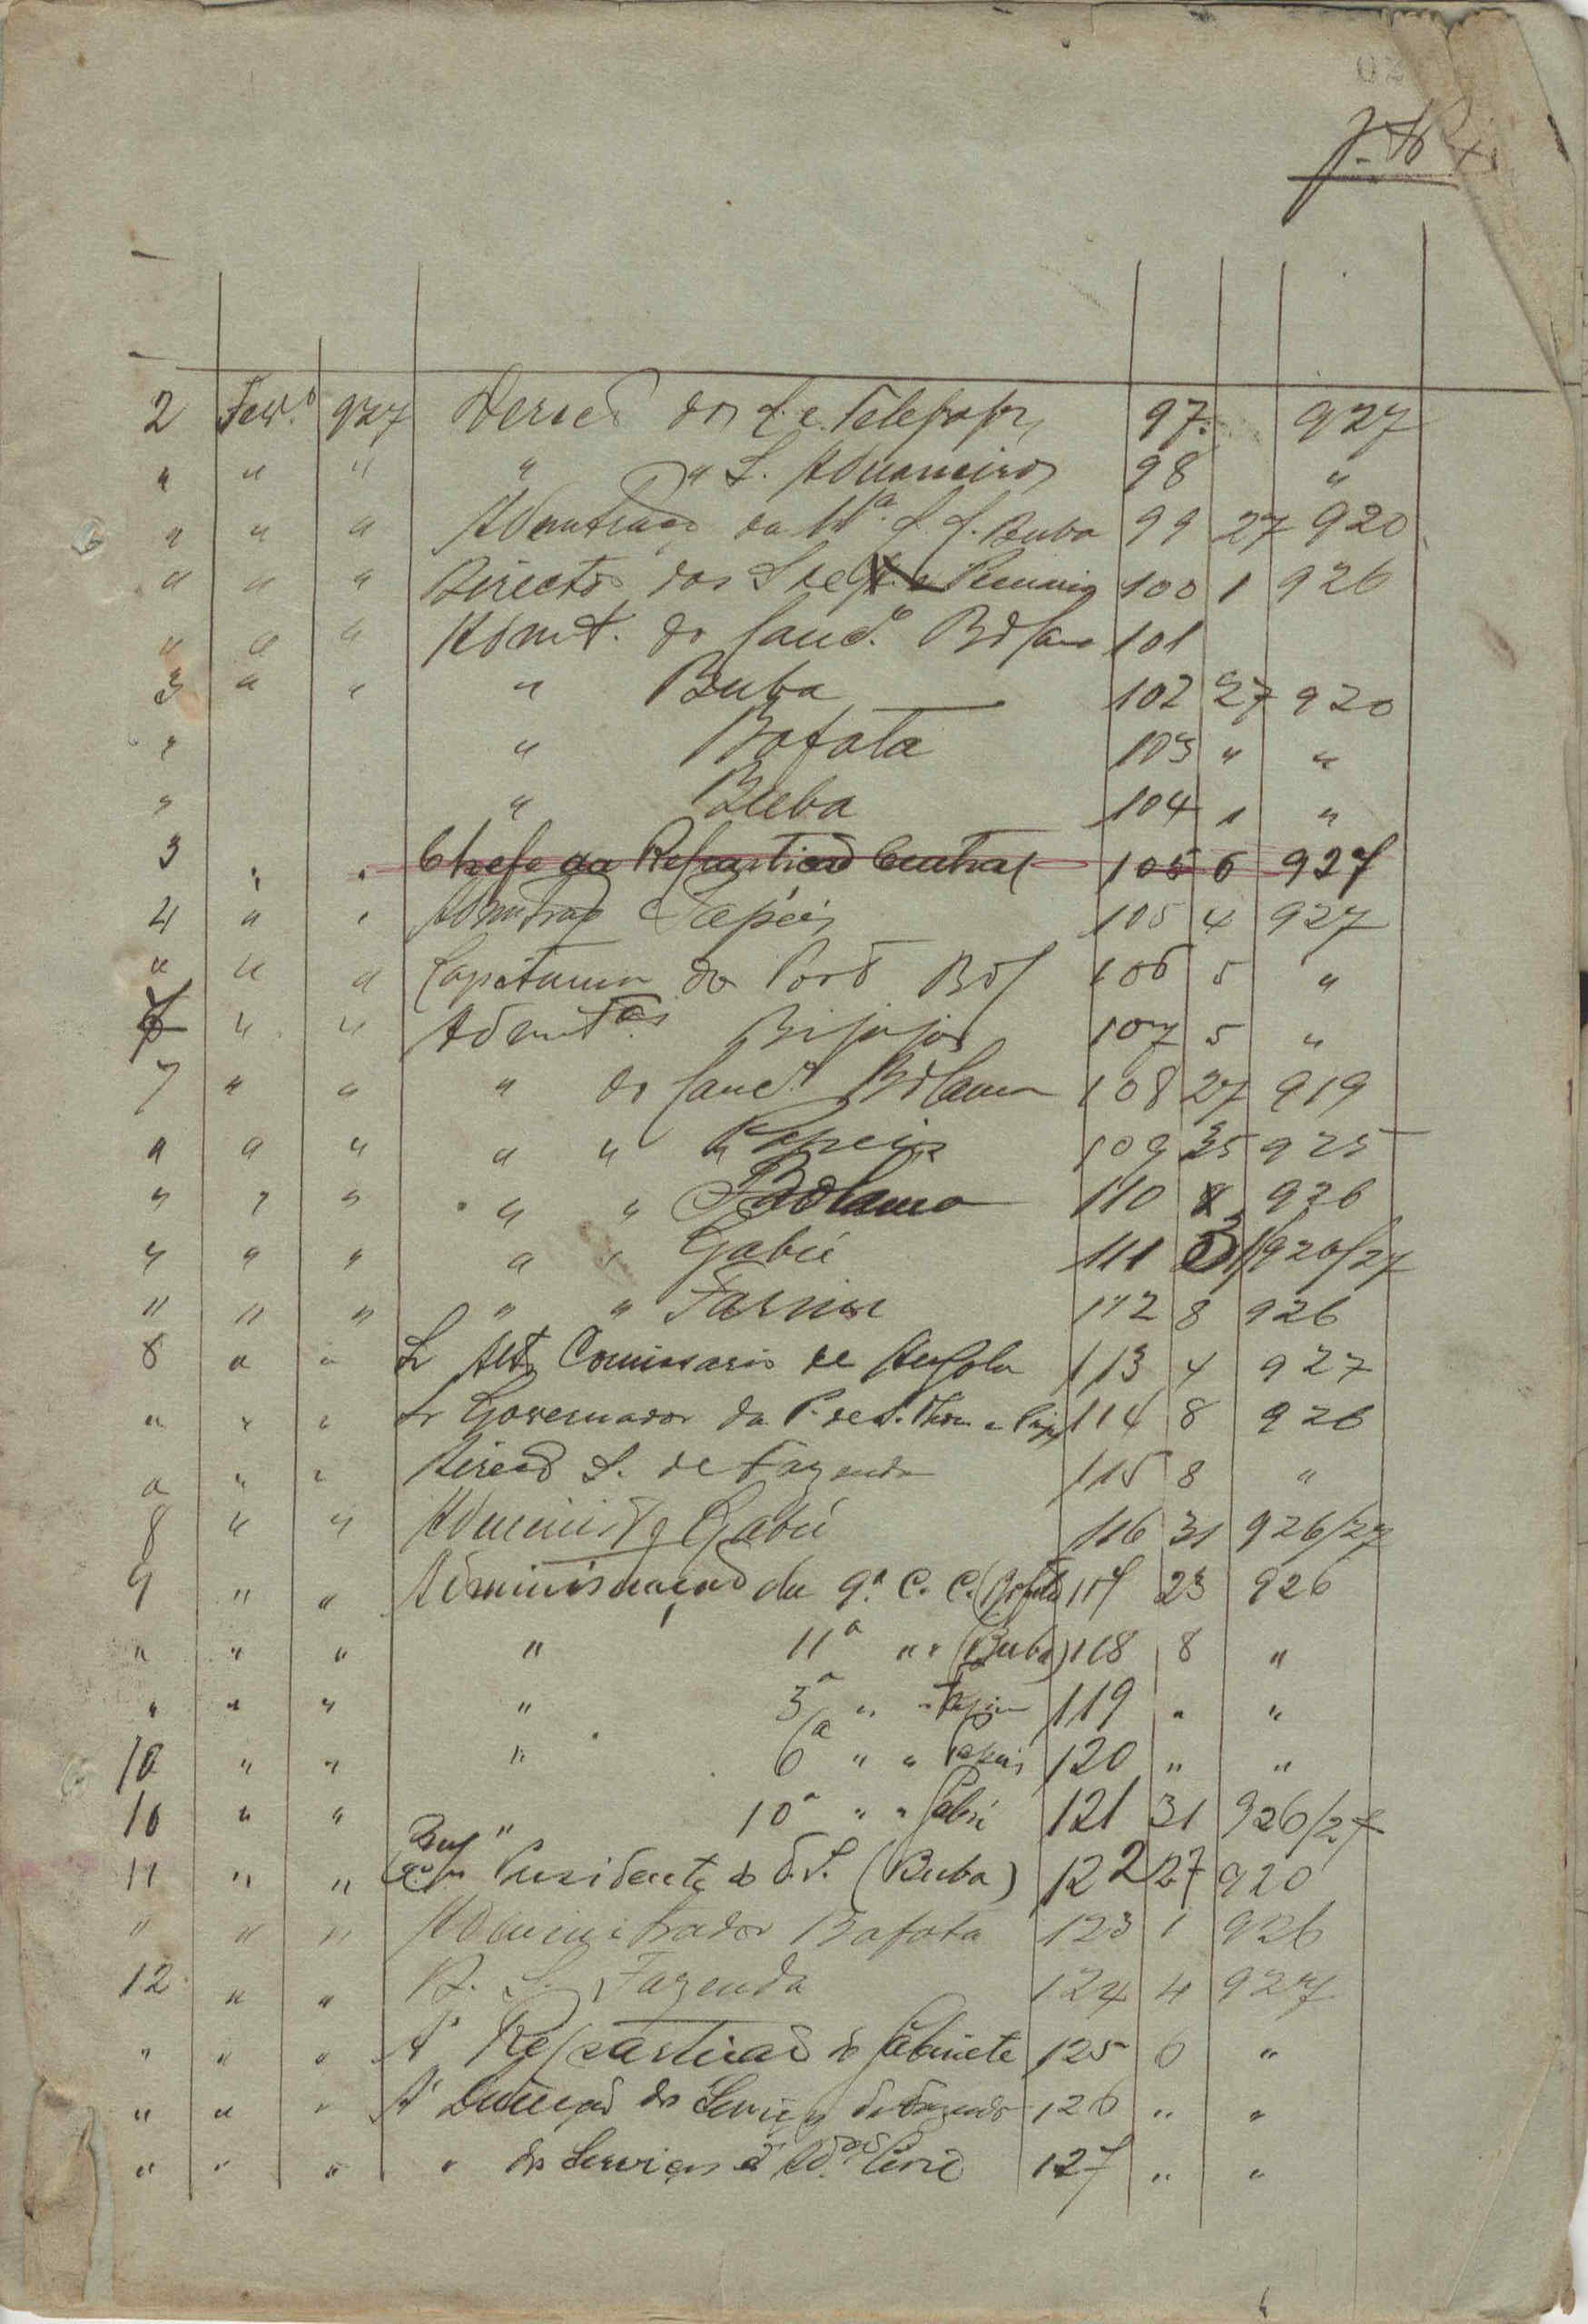 2 Fev.º 927 dos C. e Telegrapº 97 927
" " " " " S. Aduaneiros 98 "
" " " da 11ª C. C. Buba 99 27 920
" " " Director dos S. Pecuaria 100 1 926
" " " Admt. do Conc.º Bolama 101
3 " " " Buba 102 27 920
" " Bafata 103 " "
" " Buba 104 1 "
3 " " Chefe da Repartição Central 105 6 927
4 " " Papeis 105 4 927
" " " Capitania do Porto Bol 106 5 "
" " Bijagos 107 5 "
7 " " " do Conc.º Bolama 108 27 919
" " " " " Papeis 109 35 925
" " " " " Bolama 110 8 926
" " " " " Gabú 111 31 926/27
" " " " " Farim 112 8 926
8 " " Sr Alto Comissario de Angola 113 4 927
" " " Sr Governador da P. de S. Thome e 114 8 926
" " " S. de Fazenda 115 8 "
8 " " Gabú 116 31 926/27
9 " " Administração da 9ª C. C. (Bafata 117 23 926
" " " " 11ª " " (Buba) 118 8 "
" " " " 3ª " " 119 " "
10 " " " 6ª " " Papeis 120 " "
10 " " " 10ª " " Gabú 121 31 926/27
11 " " Presidente (Buba) 122 27 920
" " " Administrador Bafata 123 1 926
12 " " D. S. Fazenda 124 4 927
" " " Á Repartição do Gabinete 125 6 "
" " " Á Direcção dos Serviços de Fazenda 126 " "
" " " " dos Serviços e 127 " "